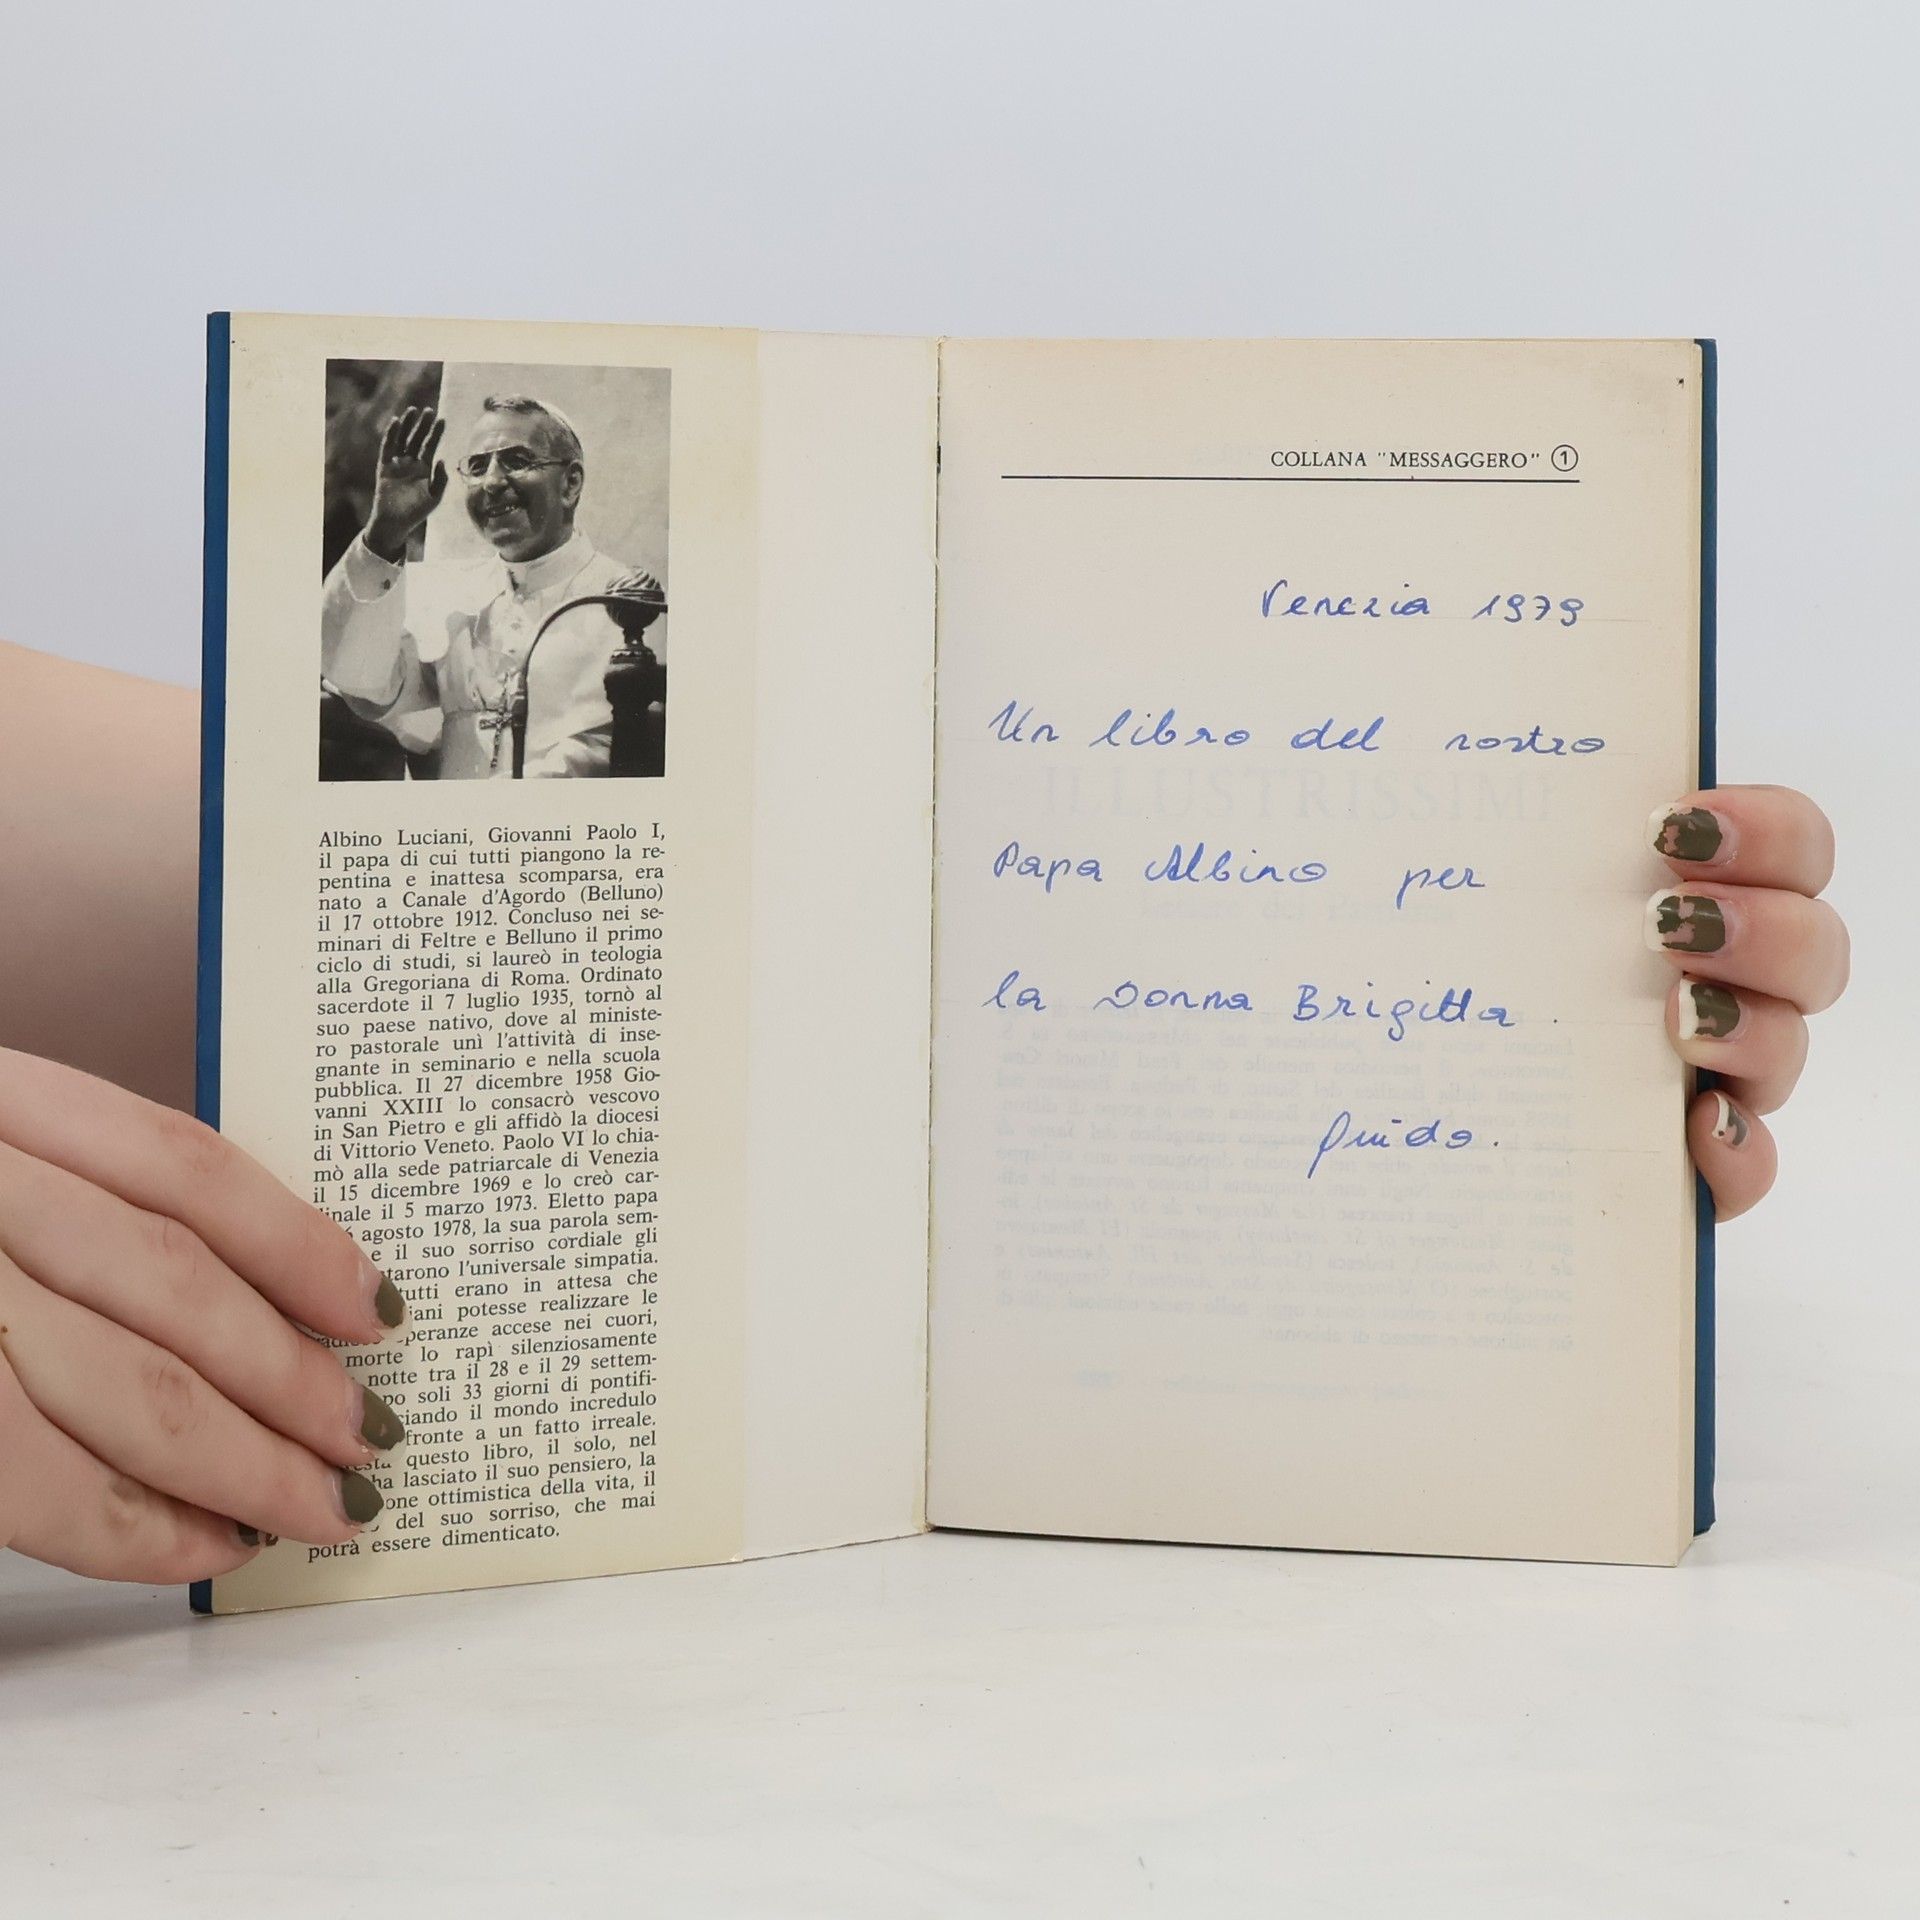 Albino Luciani, Giovanni Paolo I,
il papa di cui tutti piangono la re-
pentina e inattesa scomparsa, era
nato a Canale d'Agordo (Belluno)
il 17 ottobre 1912. Concluso nei se-
minari di Feltre e Belluno il primo
ciclo di studi, si laureò in teologia
alla Gregoriana di Roma. Ordinato
sacerdote il 7 luglio 1935, tornò al
suo paese nativo, dove al ministe-
ro pastorale unì l'attività di inse-
gnante in seminario e nella scuola
pubblica. Il 27 dicembre 1958 Gio-
vanni XXIII lo consacrò vescovo
in San Pietro e gli affidò la diocesi
di Vittorio Veneto. Paolo VI lo chia-
mò alla sede patriarcale di Venezia
il 15 dicembre 1969 e lo creò car-
dinale il 5 marzo 1973. Eletto papa
agosto 1978, la sua parola sem-
e il suo sorriso cordiale gli
l'universale simpatia.
tutti erano in attesa che
potesse realizzare le
speranze accese nei cuori,
morte lo rapì silenziosamente
notte tra il 28 e il 29 settem-
soli 33 giorni di pontifi-
il mondo incredulo
fronte a un fatto irreale.
questo libro, il solo, nel
ha lasciato il suo pensiero, la
ottimistica della vita, il
del suo sorriso, che mai
potrà essere dimenticato.
COLLANA "MESSAGGERO" 1
Venezia 1979
Un libro del nostro
Papa Albino per
la Donna Brigitta.
Guido.
ILLUSTRISSIMI